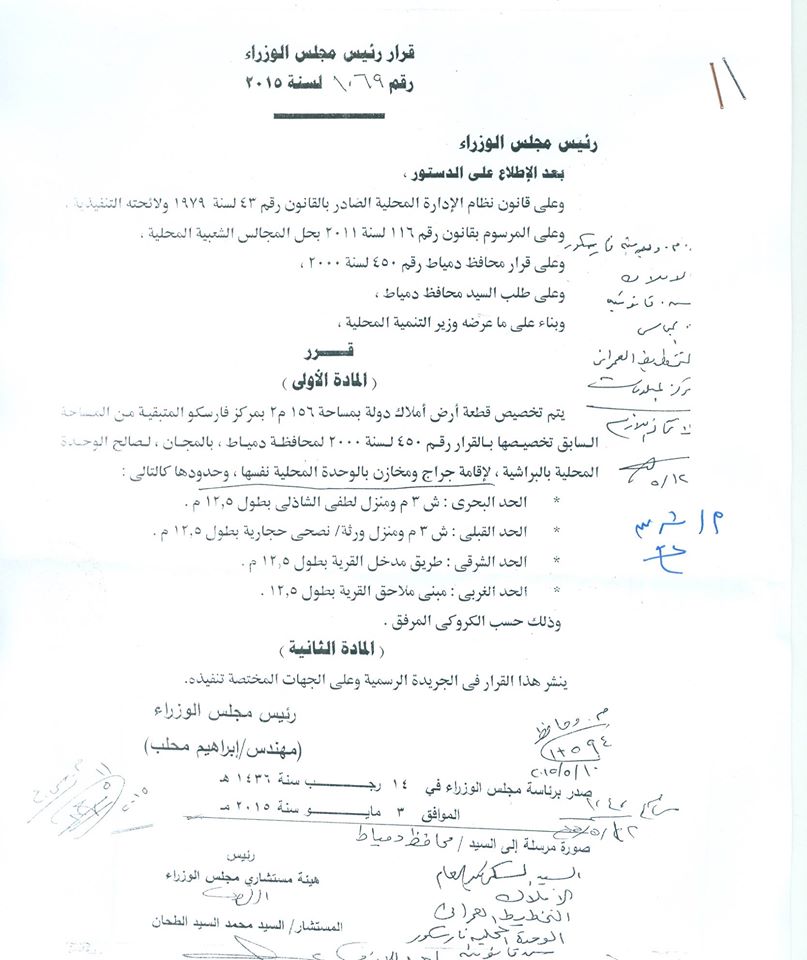 قرار رئيس مجلس الوزراء
رقم ١٠٦٩ لسنة ٢٠١٥
رئيس مجلس الوزراء
بعد الإطلاع على الدستور ،
وعلى قانون نظام الإدارة المحلية الصادر بالقانون رقم ٤٣ لسنة ١٩٧٩ ولائحته التنفيذية ،
وعلى المرسوم بقانون رقم ١١٦ لسنة ٢٠١١ بحل المجالس الشعبية المحلية ،
وعلى قرار محافظ دمياط رقم ٤٥٠ لسنة ٢٠٠٠ ،
وعلى طلب السيد محافظ دمياط ،
وبناء على ما عرضه وزير التنمية المحلية ،
الاملاك
لتخطيط العمرانى
٥/١٢
قـــــرر
( المادة الأولى )
يتم تخصيص قطعة أرض أملاك دولة بمساحة ١٥٦ م٢ بمركز فارسكو المتبقية من المساحة
السابق تخصيصها بالقرار رقم ٤٥٠ لسنة ٢٠٠٠ لمحافظة دمياط ، بالمجان ، لصالح الوحدة
المحلية بالبراشية ، لإقامة جراج ومخازن بالوحدة المحلية نفسها ، وحدودها كالتالى :
* الحد البحرى : ش ٣ م ومنزل لطفى الشاذلى بطول ١٢,٥ م .
* الحد القبلى : ش ٣ م ومنزل ورثة/ نصحى حجارية بطول ١٢,٥ م .
* الحد الشرقى : طريق مدخل القرية بطول ١٢,٥ م .
* الحد الغربى : مبنى ملاحق القرية بطول ١٢,٥ .
وذلك حسب الكروكى المرفق .
( المادة الثانية )
ينشر هذا القرار فى الجريدة الرسمية وعلى الجهات المختصة تنفيذه.
رئيس مجلس الوزراء
(مهندس/إبراهيم محلب)
٢٠١٥/٥/١٠
صدر برئاسة مجلس الوزراء في ١٤ رجـــــب سنة ١٤٣٦ هـ
الموافق ٣ مايـــو سنة ٢٠١٥ مـ
صورة مرسلة إلى السيد / محافظ دمياط
السيد السكرتير العام
الأملاك
التخطيط العمرانى
الوحدة المحلية فارسكور
رئيس
هيئة مستشاري مجلس الوزراء
المستشار/ السيد محمد السيد الطحان